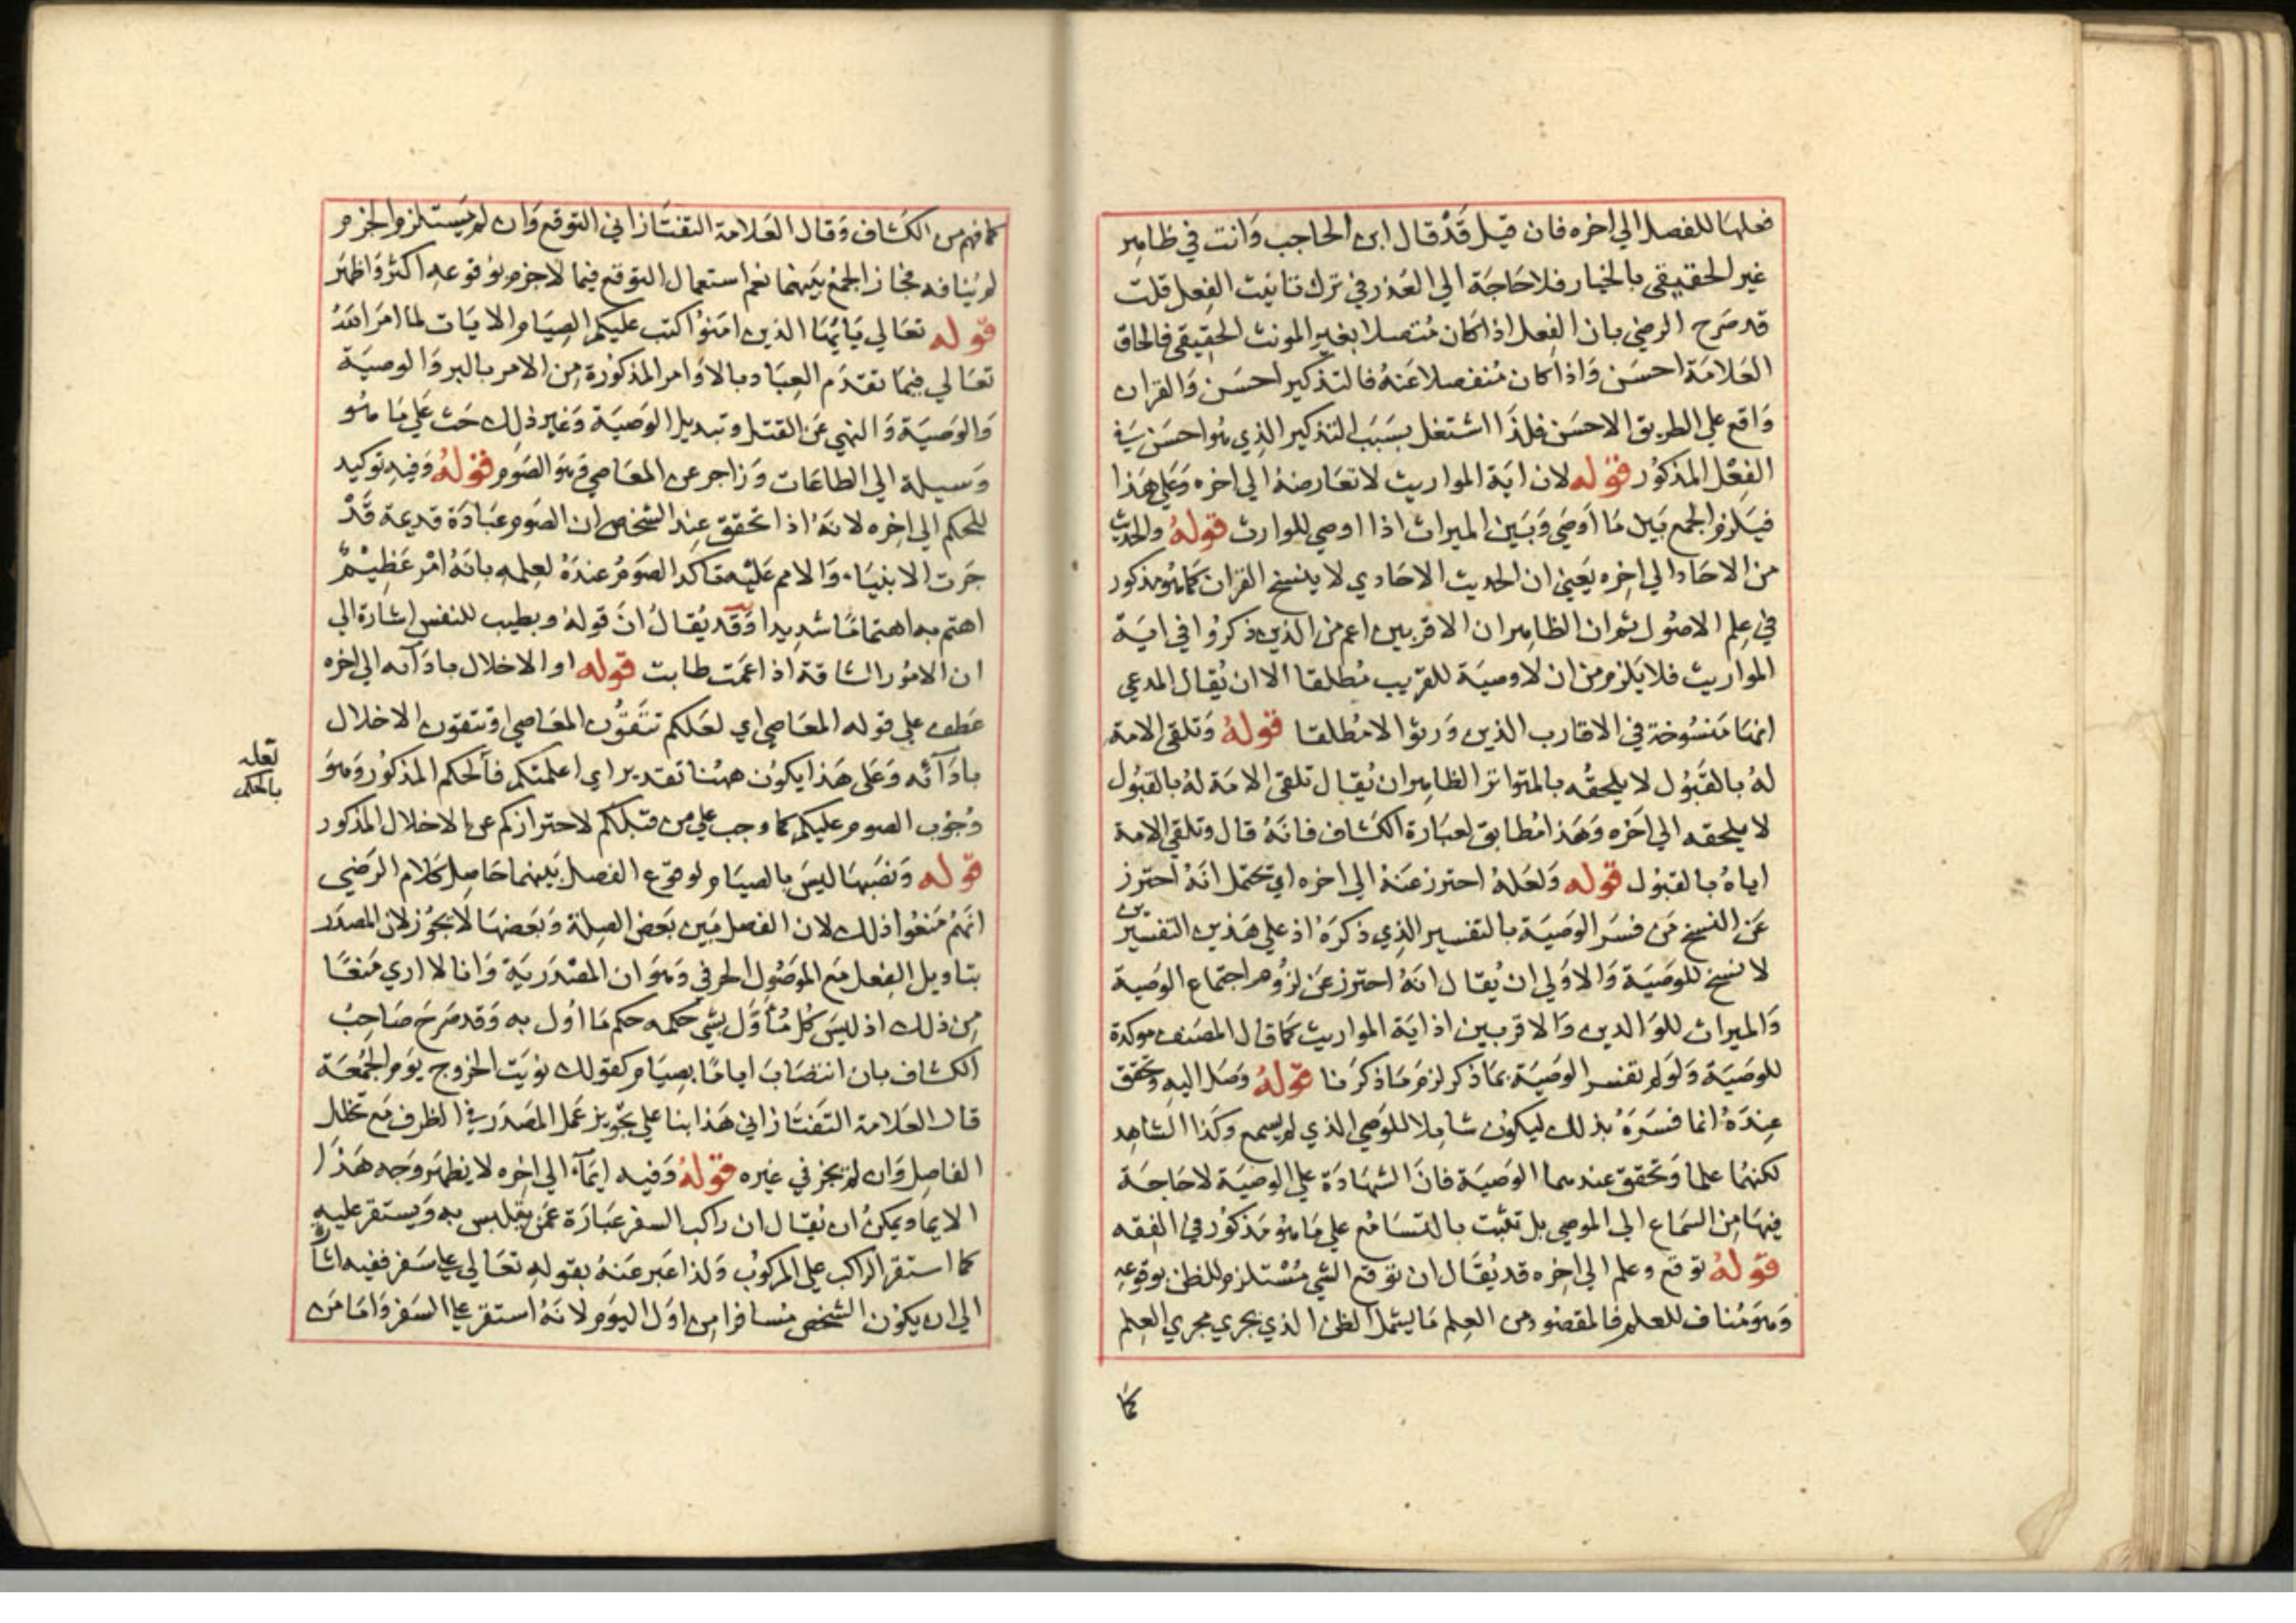 فعلها للفصل الي اخره فان قيل قَدْ قال ابن الحاجب وَانت في ظاهِر
غير الحقيقي بالخيار فلا حَاجَة الي العَذر في ترك تانيث الفِعل قلت
قد صَرح الرضي بان الفِعل اذا كان مُتصلا بغير المونث الحقيقي فالحاق
العَلامَة احسَن وَاذا كان مُنفصلا عَنهُ فالتذكير احسَن وَالقران
وَاقع علي الطريق الاحسَن فلذَا اشتغل بسَبَب التذكير الذِي هُو احسَن في
الفِعْل المذكوُر قوله لان ايَة المواريث لا تعَارضهُ الي اخره وَعَلي هَذا
فيَلزم الجمع بَين مَا اَوصَي وَبَين الميراث اذا اوصي للوارث قولهُ والحديث
من الاحَاد الي اخِره يَعني ان الحديث الاحَادي لا ينسخ القران كمَا هُو مذكور
في عِلم الاصُول ثم ان الظاهِر ان الاقربين اعم من الذين ذكرُوا في ايَة
المواريث فلا يَلزم من ان لا وصيَة للقريب مُطلقا الا ان يُقال المدعي
انهَا مَنسُوخة في الاقارب الذين وَرثوا لا مُطلقا قولهُ وَتلقي الامة
لهُ بالقَبُول لا يلحقُه بالمتواتر الظاهِر ان يُقال تلقي الامَة لهُ بالقبُول
لا يلحقه الي اخَره وَهَذا مُطابق لعبَارة الكشاف فانهُ قال وتلقي الامة
اياهُ بالقبُول قوله وَلعَلهُ احترز عَنهُ الي اخره اي يحتمل انَهُ احترز
عَن النسخ مَن فسَر الوصَيَة بالتفسير الذِي ذكرَهُ اذ علي هَذين التفسيرين
لا نسخ للوصَيَة وَالاوَلي ان يُقال انهُ احترز عَن لزُوم اجتماع الوصَية
وَالميراث للوَالدين وَالاقربين اذ ايَة المواريث كمَا قال المصَنف موكدة
للوصَيَة وَلوَ لم تفسر الوصَيَة بمَا ذكر لزمَ مَا ذكرَنا قولهُ وَصَل اليه وَتحقق
عِندَهُ انما فسَرَهُ بذلك ليكوُن شامِلا للوَصي الذي لم يسمع وكَذا الشاهِد
لكنهُما علما وَتحقق عندهما الوصَيَة فانَ الشهَادَة علي الوصَيَة لا حَاجَة
فيهَا من السَمَاع الي الموصي بل تثبت بالتسَامُع علي مَا هُو مَذكوُر في الفِقه
قولهُ توقع وعلم الي اخِره قد يُقَال ان توَقع الشي مُسْتلزم للظن بوقوعِه
وَهوَ مُناف للعلم فالمقصُود من العِلم مَا يشمل الظن الذي يجري مجري العِلم
كما
كما فهم من الكشاف وَقال العَلامة التفتَازاني التوقع وَان لم يَستلزم الجزم
لم يُنافه فجَاز الجمْع بَينهما نعم استعمال التوقع فيما لا جزم بوقوعه اكثر وَاظهَر
قوله تعَالي يَايُهَا الذين امَنوُا كتب عليكم الصِيَام الايَات لما امَر اللهُ
تعَالي فيمَا تقدَم العِبَاد بالاوَامر المذكوُرة مِن الامر بالبر وَالوصيَة
وَالوصَيَة وَالنهي عَن القتل وتبديل الوَصيَة وَغير ذلِك حَث عَلي مَا هُو
وَسيلة الي الطاعَات وَزاجر عن المعَاصي وَهوَ الصَوم قولهُ وَفيه توكيد
للحكم الي اخره لانهَ اذا تحقق عِند الشخص ان الصَوم عبَادَة قديمة قَدْ
جَرت الانبيَاء وَالامم عَليْه تاكد الصَومُ عندَهُ لعِلمه بانهُ امْر عَظِيْم
اهتم به اهتمامًا شديدا وَقد يُقال انَ قوله وبطيب للنفس اشارة الي
ان الامُور الشاقة اذا عَمت طابت قوله او الاخلال باداَئه الي اخره
عَطف علي قوله المعَاصي اي لعَلكم تتقوُن المعَاصي او تتقون الاخلال
باداَئه وَعَلي هَذا يكوُن ههُنا تقدير اي اعلمتكم فالحكم المذكوُر وَهوَ
وُجوُب الصوم عليكم كما وجب علي من قبلكم لاحترازكم عن الاخلال المذكور
قوله وَنصَبهَا ليسَ بالصيَام لوقوع الفصل بَينهما حَاصِل كلام الرَضي
انهُم مَنعُوا ذلك لان الفصل بَين بَعض الصِلة وَبَعضهَا لا يجوُز لان المصدَر
بتاويل الفِعل مَع الموصُول الحرفي وَهوَ ان المصْدَريَة وَانا لا اري مَنعًا
مِن ذلك اذ ليسَ كل مُأوَّل بشي حكمه حكم مَا اُول به وَقد صَرحَ صَاحِبُ
الكشاف بان انتصَابَ ايامًا بصِيَام كقولك نوَيت الخروج يوَم الجُمعَة
قال العَلامة التَفتَازاني هَذا بنا علي تجويز عَمل المصَدر في الظرف مَع تخلل
الفاصِل وَان لم يجز في غيره قولهُ وَفيه ايمَاء الي اخره لا يظهر وَجه هَذا
الايما ويمكن ان يُقال ان راكب السفر عبَارَة عَمن يتلبس به وَيستقر عليه
كما استقر الراكب علي المركوُب وَلذا عَبر عَنهُ بقوله تعَالي علي سَفر ففيه اشارة
الي ان يكوُن الشخص مُسافرا مِن اوَل اليوَم لانهُ استقر علي السَفر وَامَا مَن
تعله
بالحكم